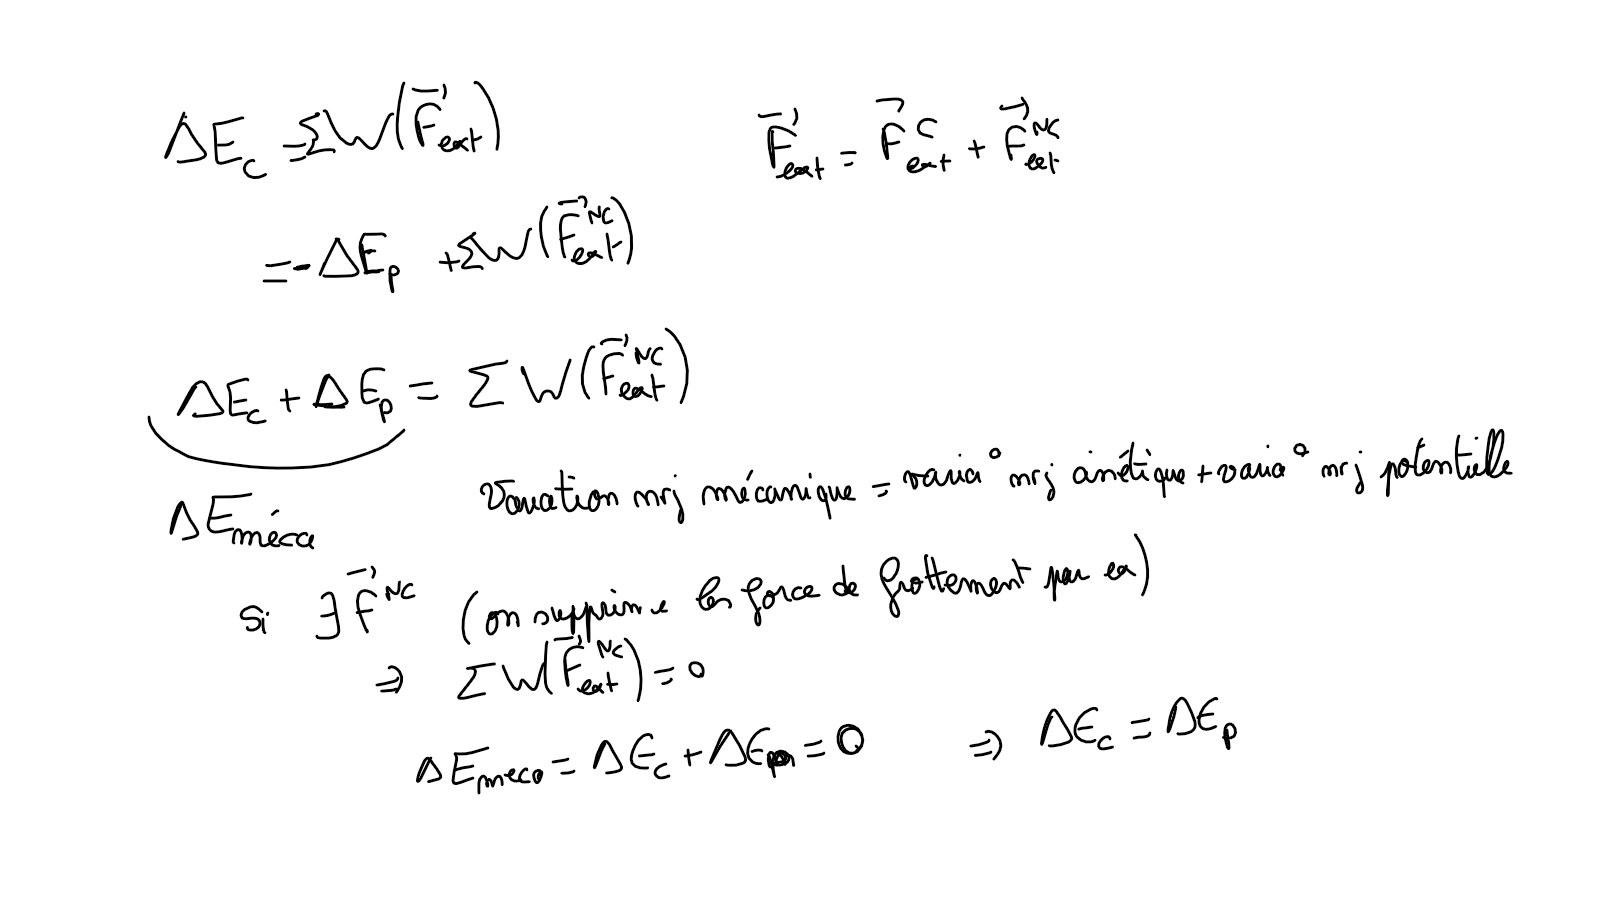 ΔE_c = ΣW(F⃗_ext)
F⃗_ext = F⃗_ext^C + F⃗_ext^NC
= - ΔE_p + ΣW(F⃗_ext^NC)
ΔE_c + ΔE_p = ΣW(F⃗_ext^NC)
ΔE_méca
Variation nrj mécanique = varia° nrj cinétique + varia° nrj potentielle
Si ∃ F⃗^NC (on supprime les force de frottement par ex)
⇒ ΣW(F⃗_ext^NC) = 0
ΔE_meca = ΔE_c + ΔE_p = 0 ⇒ ΔE_c = ΔE_p